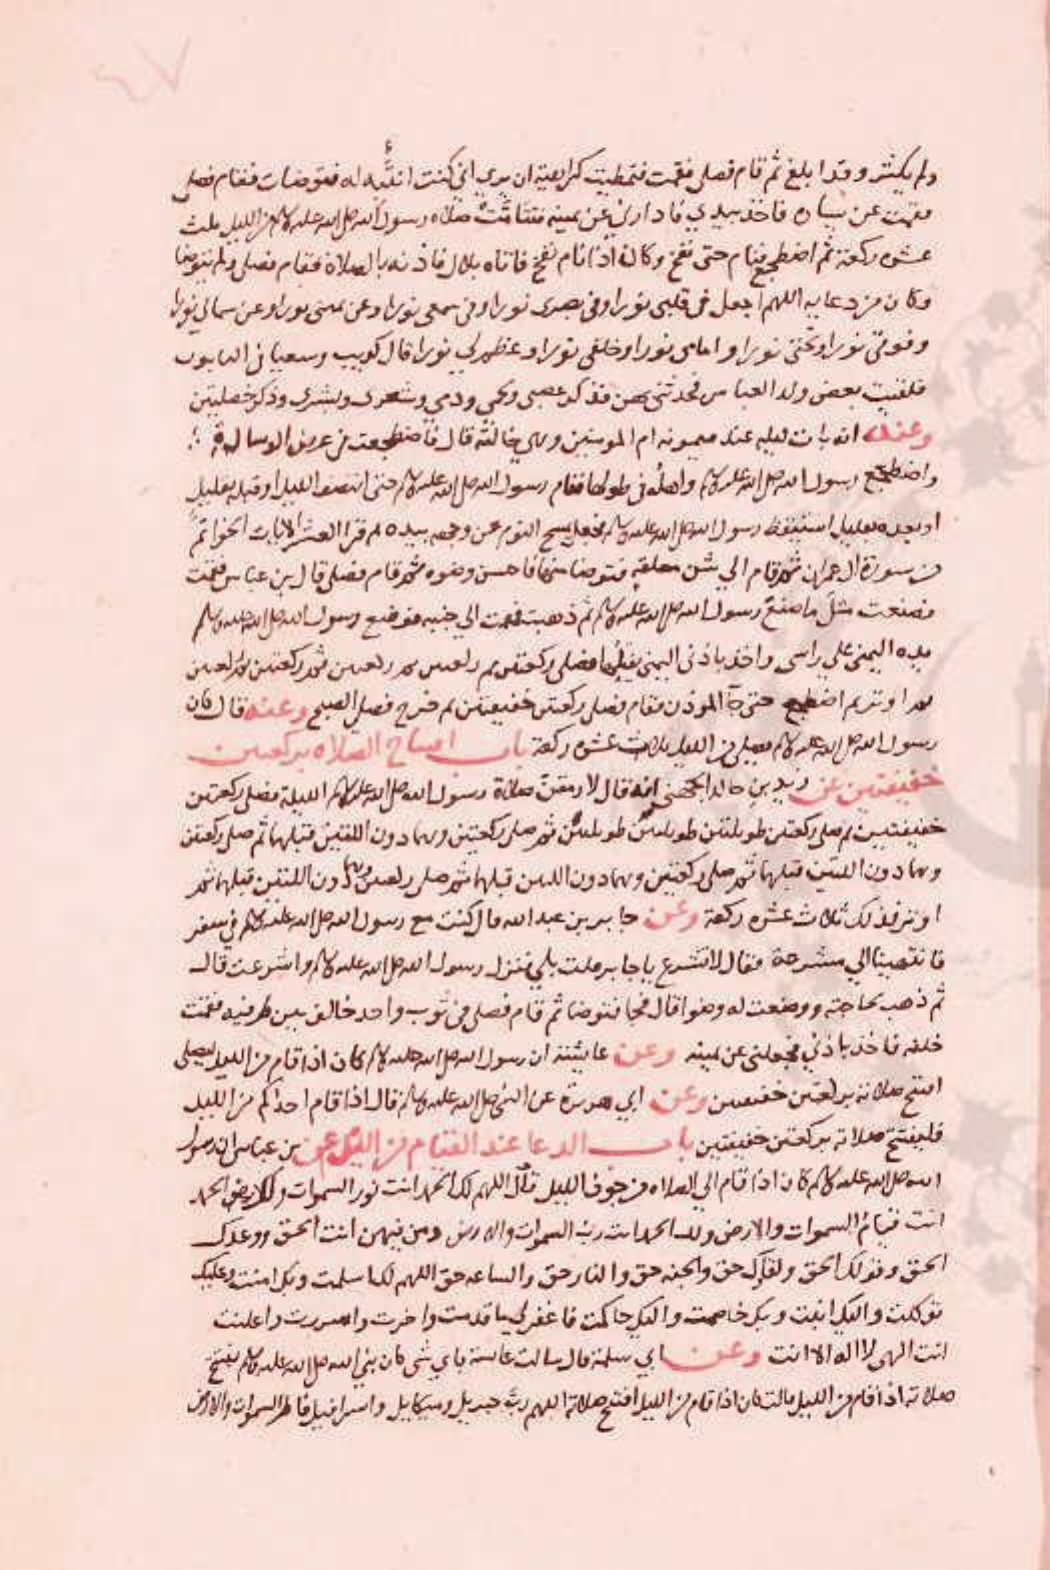 ٤٧
ولم يكثر وقد ابلغ ثم قام فصلى فقمت فتمطيت كراهية ان يرى اني كنت انتبه له فتوضات فقام فصلى
فقمت عن يساره فاخذ بيدي فادارني عن يمينه فتتامت صلاة رسول الله صلى الله عليه وسلم من الليل ثلث
عشره ركعة ثم اضطجع فنام حتى نفخ وكان اذا نام نفخ فاتاه بلال فاذنه بالصلاة فقام فصلى ولم يتوضا
وكان من دعايه اللهم اجعل في قلبي نورا وفي بصرى نورا وفي سمعي نورا وعن يميني نورا وعن شمالي نورا
وفوقي نورا وتحتي نورا وامامي نورا وخلفي نورا وعظم لي نورا قال كريب وسبعا في التابوت
فلقيت بعض ولد العباس فحدثني بهن فذكر عصبي ولحمي ودمي وشعري وبشري وذكر خصلتين
وعنه انه بات ليله عند ميمونه ام المومنين وهي خالته قال فاضطجعت في عرض الوساده
واضطجع رسول الله صلى الله عليه وسلم واهله في طولها فقام رسول الله صلى الله عليه وسلم حتى انتصف الليل او قبله بقليل
او بعده بقليل استيقظ رسول الله صلى الله عليه وسلم فجعل يمسح النوم عن وجهه بيده ثم قرا العشر الايات الخواتم
من سورة ال عمران ثم قام الي شن معلقه فتوضا منها فاحسن وضوه ثم قام فصلى قال بن عباس فقمت
فصنعت مثل ما صنع رسول الله صلى الله عليه وسلم ثم ذهبت فقمت الي جنبه فوضع رسول الله صلى الله عليه وسلم
يده اليمنى على راسي واخذ باذنى اليمنى يفتلها فصلى ركعتين ثم ركعتين ثم ركعتين ثم ركعتين ثم ركعتين
ثم اوتر ثم اضطجع حتى جآ الموذن فقام فصلى ركعتين خفيفتين ثم خرج فصلى الصبح وعنه قال كان
رسول الله صلى الله عليه وسلم يصلي من الليل ثلاث عشره ركعة باب افتتاح الصلاه بركعتين
خفيفتين عن زيد بن خالد الجهني انه قال لارمقن صلاة رسول الله صلى الله عليه وسلم الليلة فصلى ركعتين
خفيفتين ثم صلى ركعتين طويلتين طويلتين طويلتين ثم صلى ركعتين وهما دون اللتين قبلهما ثم صلى ركعتين
وهما دون اللتين قبلهما ثم صلى ركعتين وهما دون اللتين قبلهما ثم صلى ركعتين وهما دون اللتين قبلهما ثم
اوتر فذلك ثلاث عشره ركعة وعن جابر بن عبد الله قال كنت مع رسول الله صلى الله عليه وسلم في سفر
فانتهينا الي مشرعة فقال الا تشرع يا جابر قلت بلي فنزل رسول الله صلى الله عليه وسلم واشرعت قال
ثم ذهب لحاجته ووضعت له وضوا قال فجا فتوضا ثم قام فصلى في ثوب واحد خالف بين طرفيه فقمت
خلفه فاخذ باذني فجعلني عن يمينه وعن عايشة ان رسول الله صلى الله عليه وسلم كان اذا قام من الليل يصلى
افتتح صلاته بركعتين خفيفتين وعن ابي هريرة عن النبي صلى الله عليه وسلم قال اذا قام احدكم من الليل
فليفتتح صلاته بركعتين خفيفتين باب الدعا عند القيام من الليل عن بن عباس ان رسول
الله صلى الله عليه وسلم كان اذا قام الي الصلاه من جوف الليل قال اللهم لك الحمد انت نور السموات والارض ولك الحمد
انت قيام السموات والارض ولك الحمد انت رب السموات والارض ومن فيهن انت الحق ووعدك
الحق وقولك الحق ولقاوك حق والجنه حق والنار حق والساعه حق اللهم لك اسلمت وبك امنت وعليك
توكلت واليك انبت وبك خاصمت واليك حاكمت فاغفر لي ما قدمت واخرت واسررت واعلنت
انت الهى لا اله الا انت وعن ابي سلمة قال سالت عائشة باي شي كان نبي الله صلى الله عليه وسلم يفتتح
صلاته اذا قام من الليل قالت كان اذا قام من الليل افتتح صلاته اللهم رب جبريل وميكايل واسرافيل فاطر السموات والارض